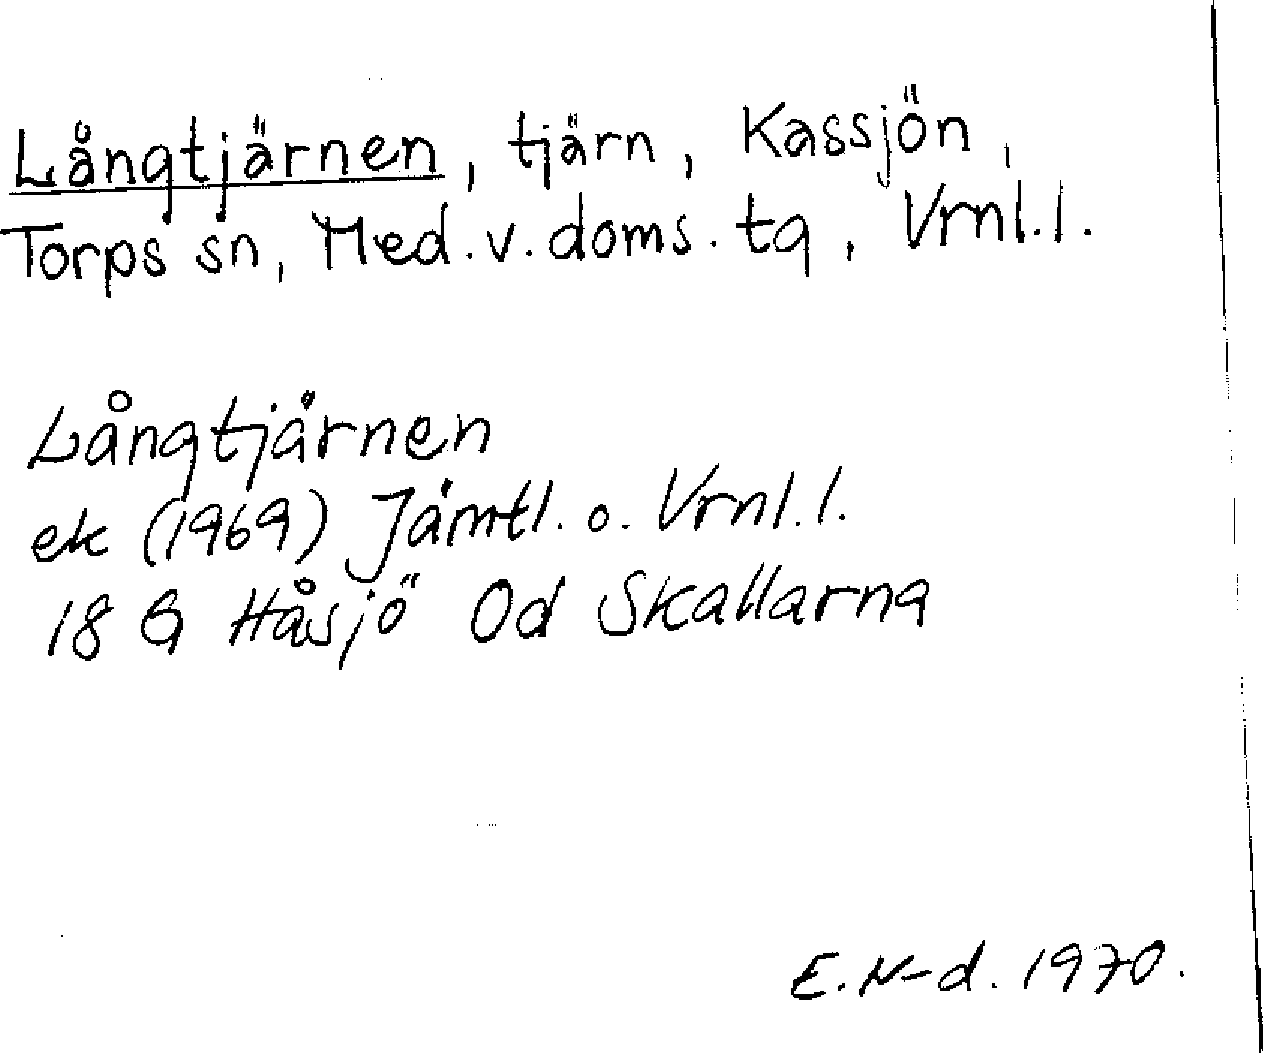 Långtjärnen, tjärn, Kassjön,
Torps sn, Med.v.doms.tg, Vrnl.l.
Långtjärnen
ek (1969) Jämtl. o. Vrnl.l.
18 G Håsjö Od Skallarna
E.N-d. 1970.